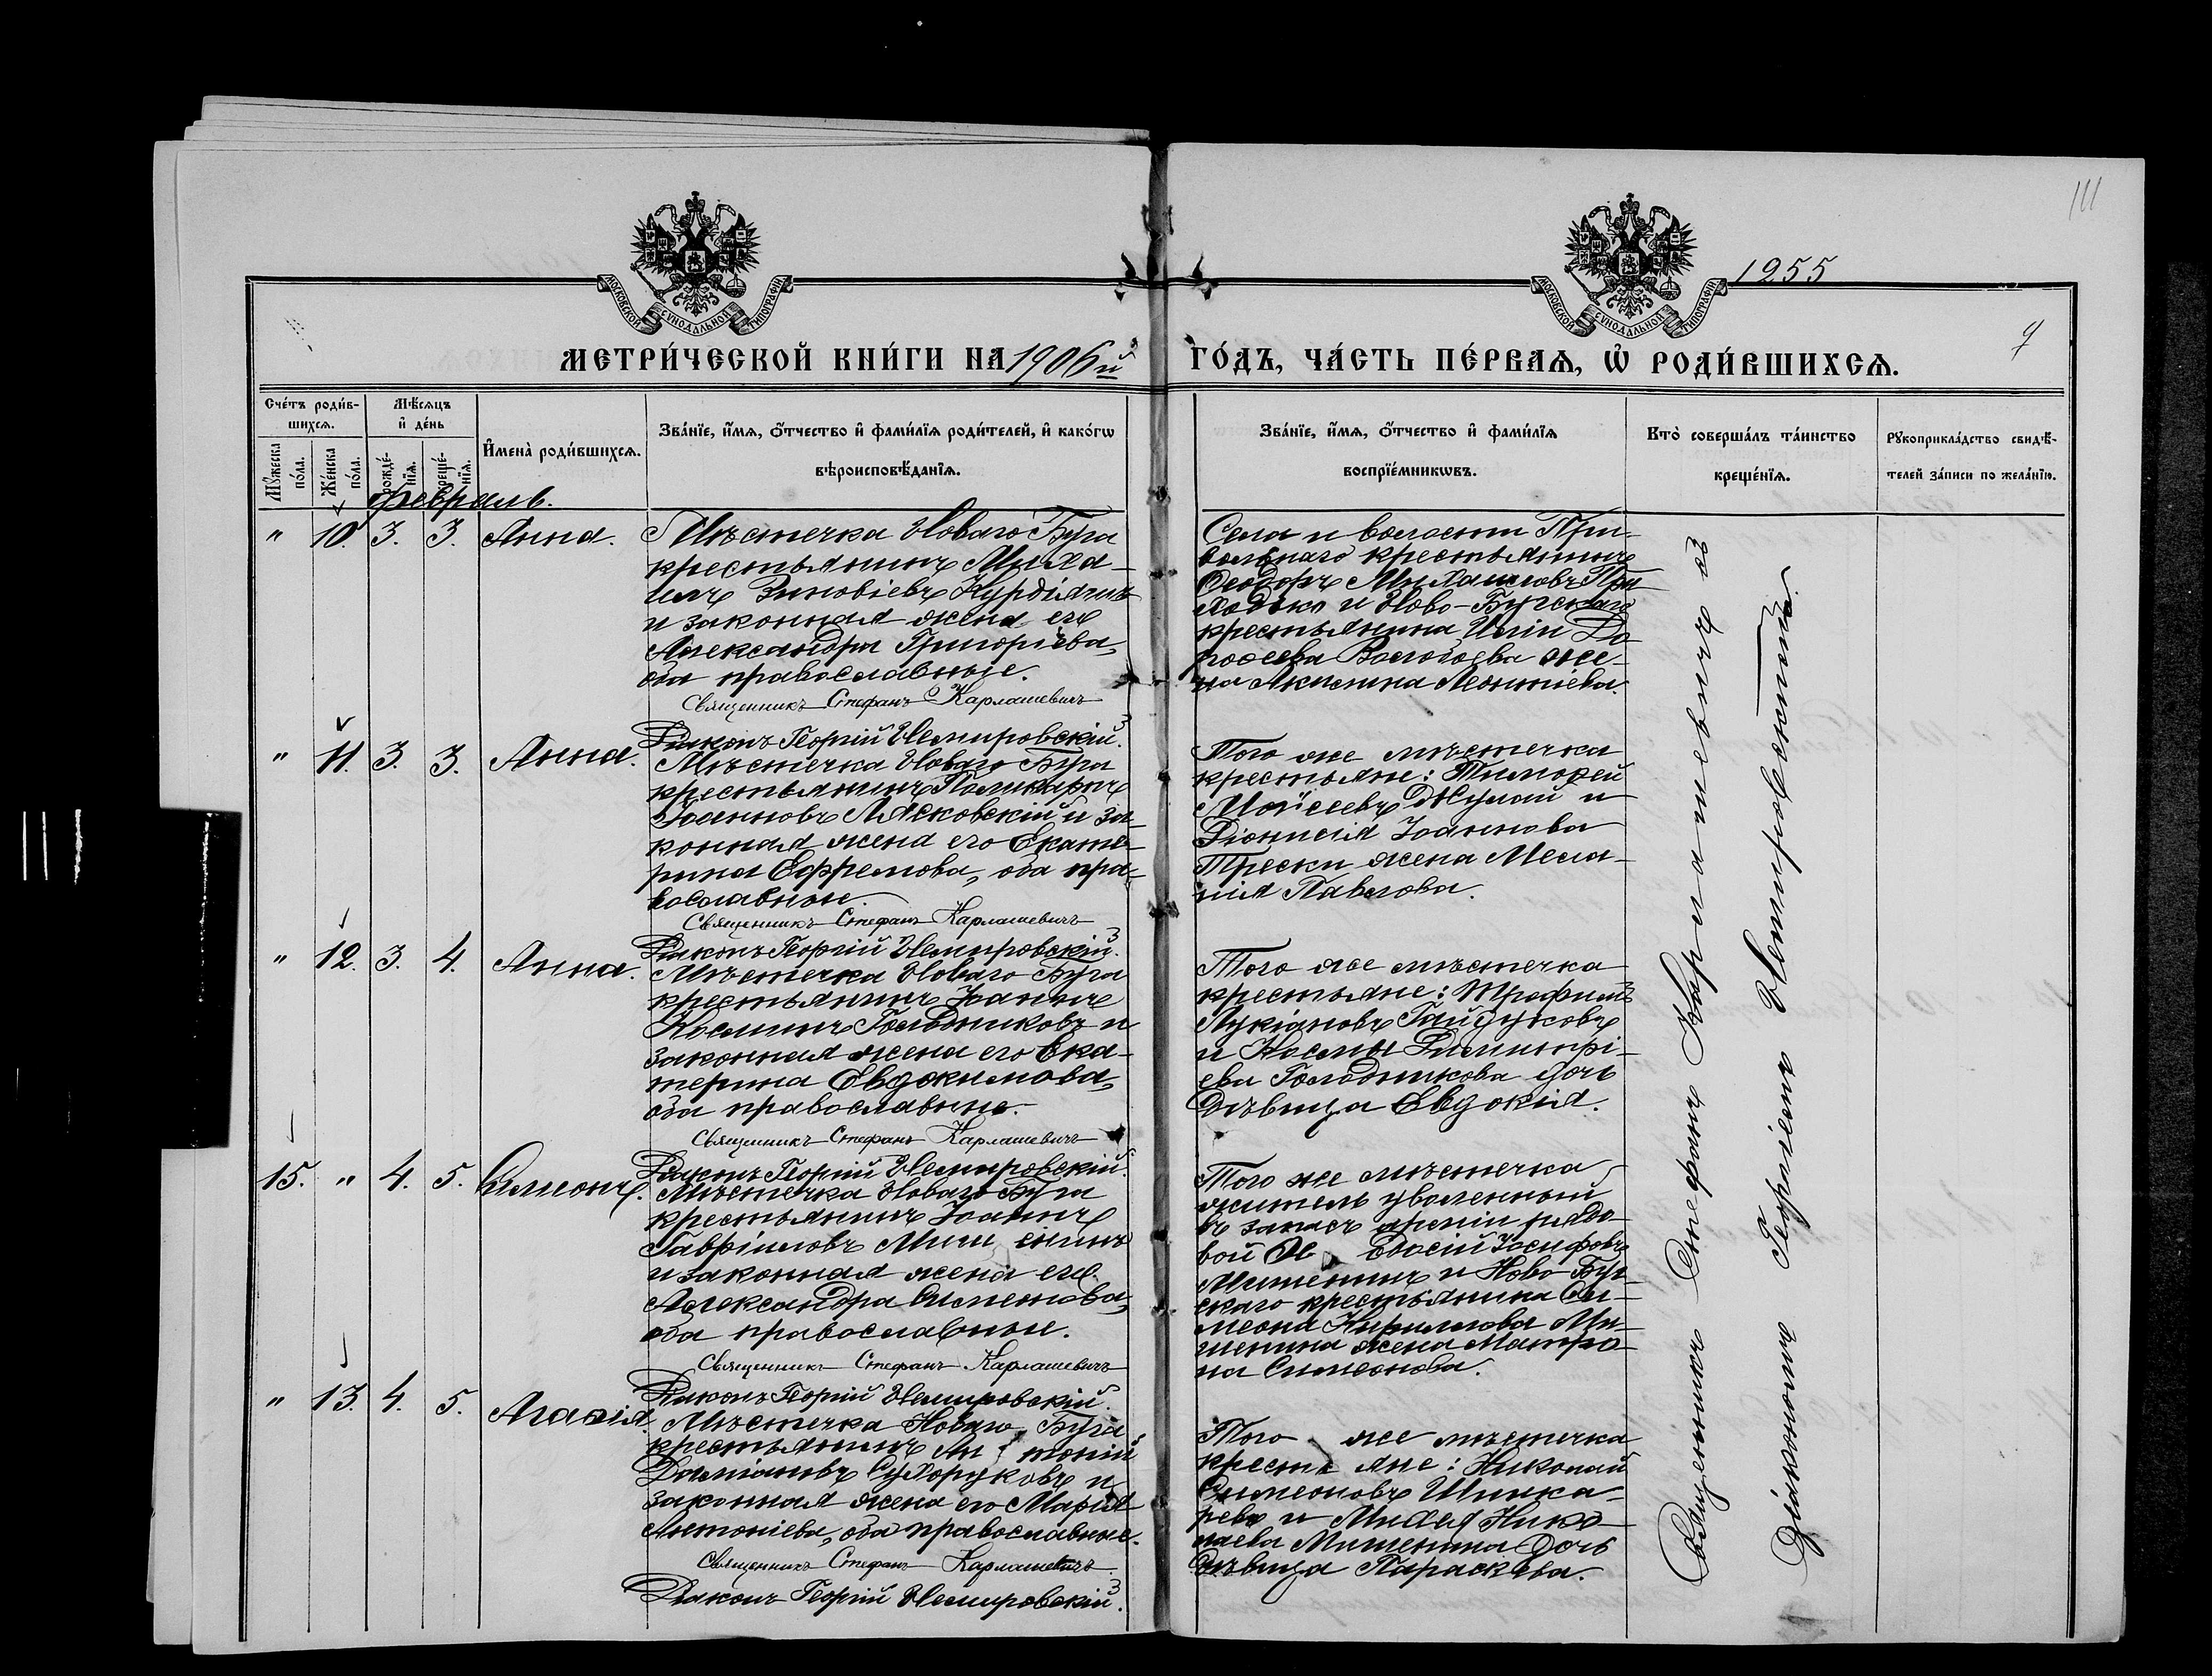 111
1255
7
МОСКОВСКОЙ СѴНОДАЛЬНОЙ ТИПОГРАФІИ
МОСКОВСКОЙ СѴНОДАЛЬНОЙ ТИПОГРАФІИ
МЕТРИ́ЧЕСКОЙ КНИ́ГИ НА 1906й
ГО́ДЪ, ЧА́СТЬ ПЕ́РВАѦ, Ѡ҆ РОДИ́ВШИХСѦ.
Сче́тъ роди́в-
шихсѧ.
Мꙋ́жеска
по́ла.
Же́нска
по́ла.
Мѣ́сѧцъ
и҆ де́нь
рожде́-
нїѧ.
креще́-
нїѧ.
И҆мена̀ роди́вшихсѧ.
Зва́нїе, и҆́мѧ, ѻ҆́тчество и҆ фами́лїѧ роди́телей, и҆ како́гѡ
вѣроисповѣ́данїѧ.
Зва́нїе, и҆́мѧ, ѻ҆́тчество и҆ фами́лїѧ
воспрїе́мникѡвъ.
Кто̀ соверша́лъ та́инство
креще́нїѧ.
Рꙋкоприкла́дство свидѣ́-
телей за́писи по жела́нїю.
февраль.
" 10. 3. 3. Анна.
Мѣстечка Новаго Буга
крестьянинъ Миха-
илъ Зиновіевъ Курдіячъ
и законная жена его
Александра Григоріева,
оба православные.
Священникъ Стефанъ Карлашевичъ
Діаконъ Георгій Немировскій.
Села и волости При-
вольнаго крестьянинъ
Ѳеодоръ Михаиловъ При
ходько и Ново-Бугскаго
крестьянина Иліи До
роѳеева жe-
на Акилина Леонтіева.
" 11. 3. 3. Анна.
Мѣстечка Новаго Буга
крестьянинъ Поликарпъ
Іоанновъ Лясковскій и за-
конная жена его Екате-
рина Ефремова, оба пра-
вославные.
Священникъ Стефанъ Карлашевичъ
Діаконъ Георгій Немировскій.
Того же мѣстечка
крестьяне: Тимоѳей
Моѵсеевъ и
Діонисія Іоаннова
Трески жена Мела-
нія Павлова.
" 12. 3. 4. Анна.
Мѣстечка Новаго Буга
крестьянинъ Іоаннъ
Косминъ Голодниковъ и
законная жена его Ека-
терина Евдокимова,
оба православные.
Священникъ Стефанъ Карлашевичъ
Діаконъ Георгій Немировскій.
Того же мѣстечка
крестьяне: Трофимъ
Лукіановъ Гайдуковъ
и Космы Димитрі-
ева Голодникова дочь
дѣвица Евдокія.
15. " 4. 5. Симеонъ.
Мѣстечка Новаго Буга
крестьянинъ Іоаннъ
Гавріиловъ Миш енинъ
и законная жена его
Александра Симеонова,
оба православные.
Священникъ Стефанъ Карлашевичъ
Діаконъ Георгій Немировскій.
Того же мѣстечка
житель уволенный
въ запасъ арміи рядо-
вой Ѳе одосій Іосифовъ
Мишенинъ и Ново-Буг-
скаго крестьянина Си-
меона Кириллова Ми-
шенина жена Матро-
на Симеонова.
" 13. 4. 5. Агаѳія.
Мѣстечка Новаго Буга
крестьянинъ Ан тоній
Даміановъ Сухоруковъ и
законная жена его Марія
Антоніева, оба православные.
Священникъ Стефанъ Карлашевичъ.
Діаконъ Георгій Немировскій.
Того же мѣстечка
кресть яне: Николай
Симеоновъ Шинка-
рев и Михея Нико-
лаева Мишенина дочь
дѣвица Параскева.
Священникъ Стефанъ Карлашевичъ съ
Діакономъ Георгіемъ Немировскимъ.